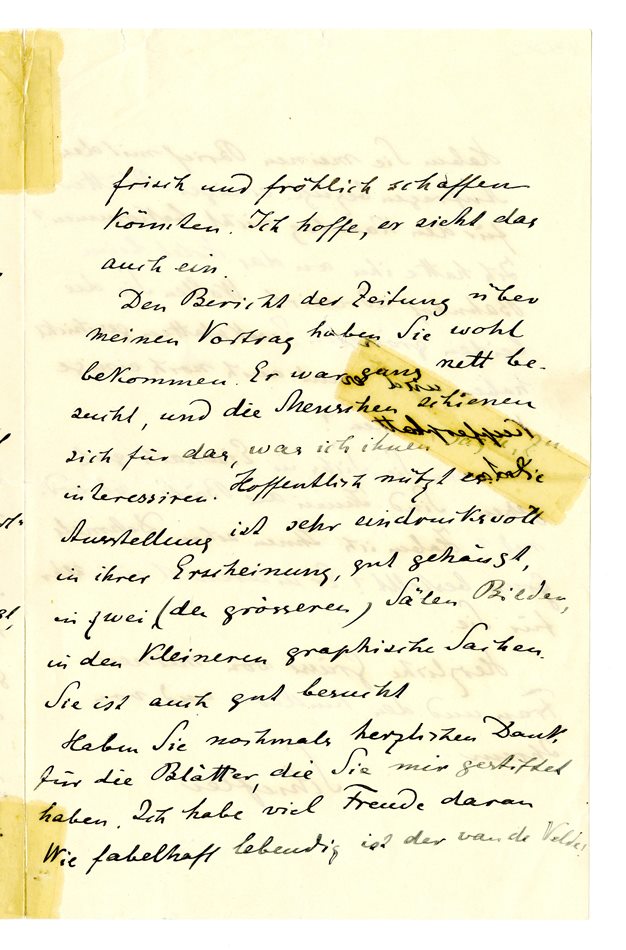 frisch und fröhlich schaffen
könnten. Ich hoffe, er sieht das
auch ein.
Den Bericht der Zeitung über
meinen Vortrag haben Sie wohl
bekommen. Er war ganz nett be-
sucht, und die Menschen schienen
sich für das, was ich ihnen
interessiren. Hoffentlich nützt es. Die
Ausstellung ist sehr eindrucksvoll
in ihrer Erscheinung, gut gehängt,
in zwei (den grösseren) Sälen Bilder,
in den kleineren graphische Sachen.
Sie ist auch gut besucht
Haben Sie nochmals herzlichen Dank
für die Blätter, die Sie mir gestiftet
haben. Ich habe viel Freude daran
Wie fabelhaft lebendig ist der van de Velde!